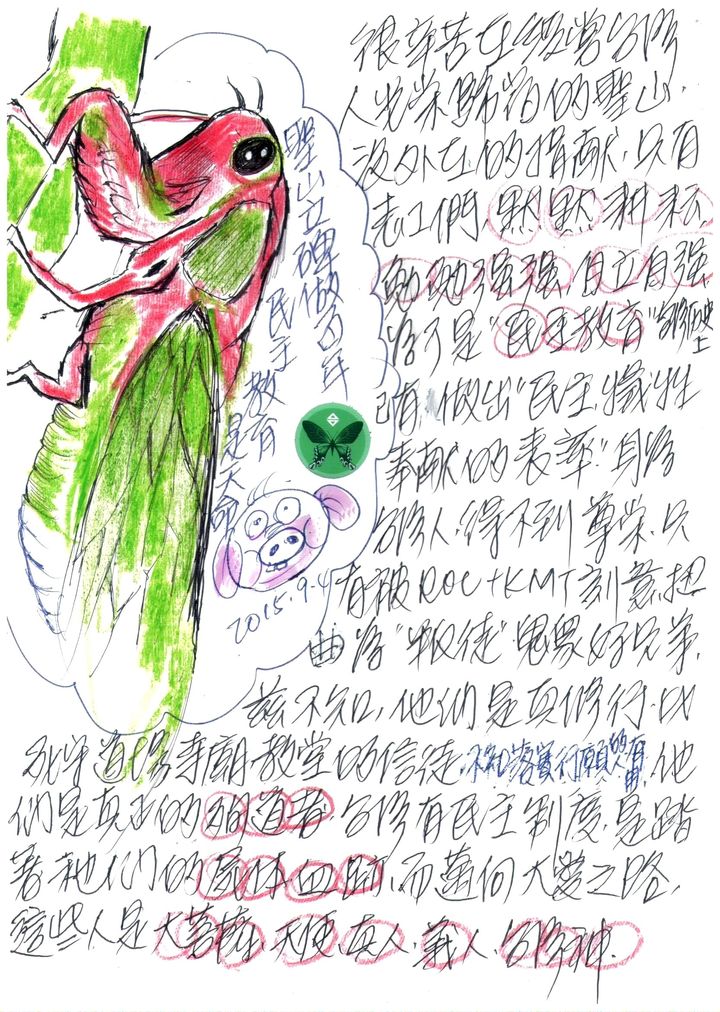 聖山立碑做百年
民主教育是天命
2015.9.4
很辛苦在經營台灣
人光榮歸宿的聖山.
沒外在的捐献.只有
志工們.黙黙耕耘
勉勉强强.自立自强.
為了是"民主教育"台灣历史上
已有做出"民主犧牲
奉献的表率"身為
台灣人.得不到尊榮.只
有被ROC+KMT刻意扭
曲為"叛徒"鬼眾好兄弟.
茲不知,他們是真修行.比
死守道場寺廟教堂的信徒.不知落實行願的人有用.他
們是真正的殉道者.台灣有民主制度.是踏
著祂們的屍体血跡,而邁向大愛之路.
這些人是大菩薩.天使.真人.義人.台灣神.